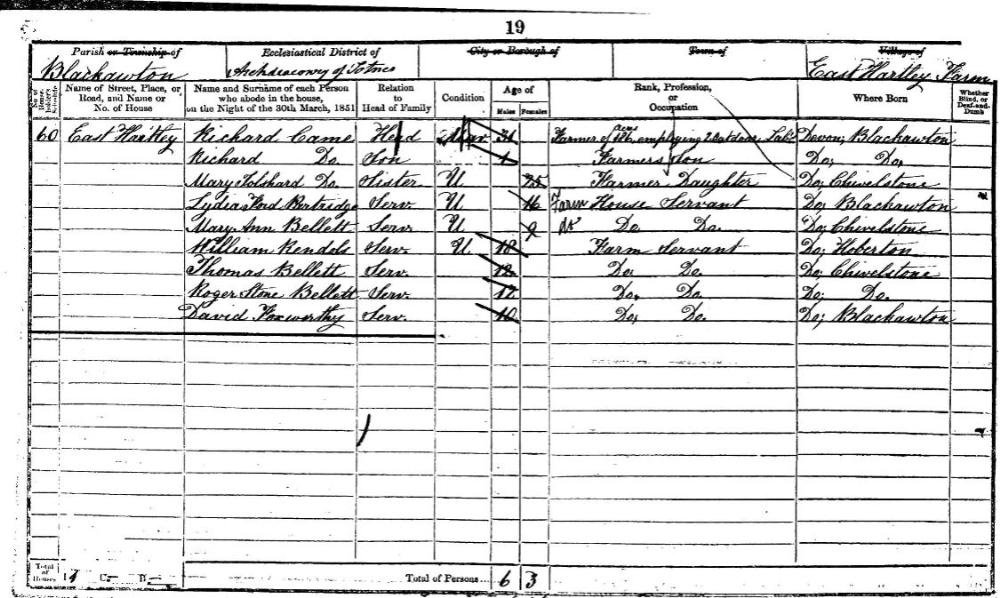 19
Parish or Township of Ecclesiastical District of City or Borough of Town of Village of
Blackawton Archdeaconry of Totnes East Hartley Farm
Name of Street, Place, or Road, and Name or No. of House Name and Surname of each Person who abode in the house, on the Night of the 30th March, 1851 Relation to Head of Family Condition Age of Males Females Rank, Profession, or Occupation Where Born Whether Blind, or Deaf-and-Dumb
60 East Hartley Richard Came Head Mar Farmer of acres employing 2 outdoor Labs Devon; Blackawton
Richard Do. Son 1 Farmers Son Do; Do.
Mary Do. Sister U 25 Farmer Daughter Do; Chivelstone
Lydia Ford Partridge Serv. U 16 Farm House Servant Do; Blackawton
Mary Ann Bellett Serv. U 9 do Do Do. Do; Chivelstone
William Rendels Serv. U 18 Farm Servant Do;
Thomas Bellett Serv. 12 Do. Do. Do; Chivelstone
Roger Stone Bellett Serv. 12 Do. Do. Do; Do.
David Foxworthy Serv. 10 Do; Do. Do; Blackawton
Total of Houses 1 Total of Persons... 6 3